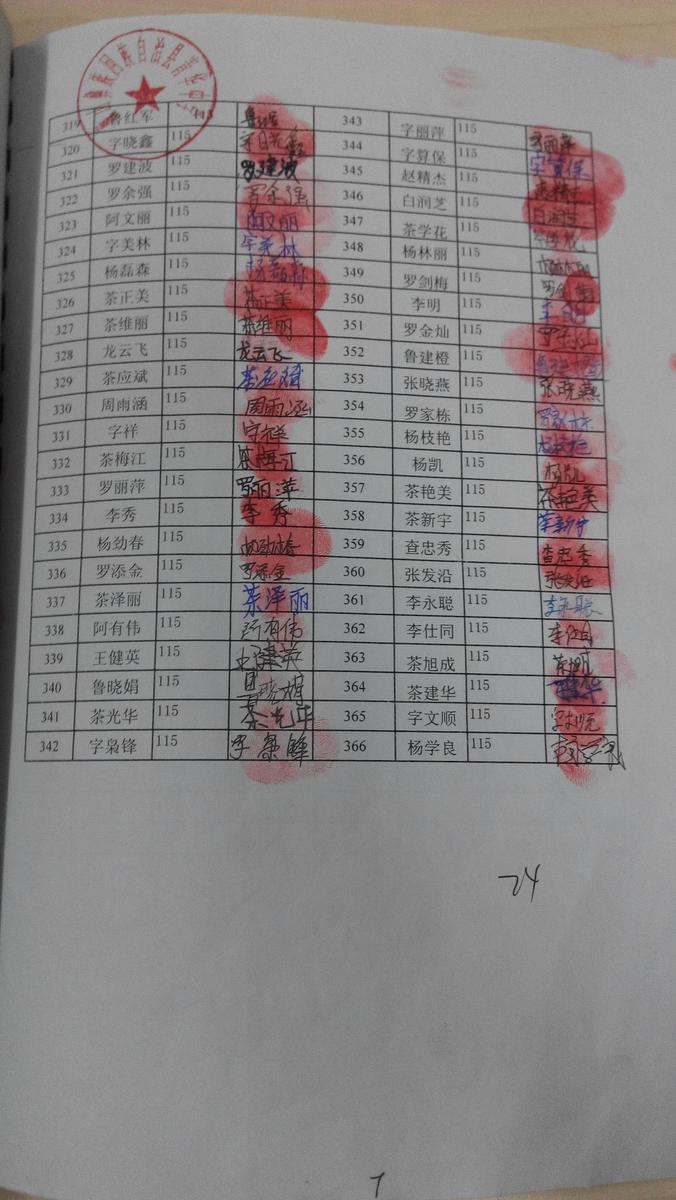 319 鲁红军 115 343 字丽萍 115
320 字晓鑫 115 344 字算保 115 字算保
321 罗建波 115 罗建波 345 赵精杰 115
322 罗余强 115 罗余强 346 白润芝 115 白润芝
323 阿文丽 115 阿文丽 347 茶学花 115
324 字美林 115 字美林 348 杨林丽 115
325 杨磊森 115 349 罗剑梅 115
326 茶正美 115 茶正美 350 李明 115 李明
327 茶维丽 115 茶维丽 351 罗金灿 115 罗金灿
328 龙云飞 115 龙云飞 352 鲁建橙 115
329 茶应斌 115 353 张晓燕 115 张晓燕
330 周雨涵 115 周雨涵 354 罗家栋 115
331 字祥 115 字祥 355 杨枝艳 115
332 茶梅江 115 茶梅江 356 杨凯 115 杨凯
333 罗丽萍 115 罗丽萍 357 茶艳美 115 茶艳美
334 李秀 115 李秀 358 茶新宇 115 茶新宇
335 杨劲春 115 杨劲春 359 查忠秀 115 查忠秀
336 罗添金 115 罗添金 360 张发沿 115 张发沿
337 茶泽丽 115 茶泽丽 361 李永聪 115 李永聪
338 阿有伟 115 阿有伟 362 李仕同 115
339 王健英 115 363 茶旭成 115
340 鲁晓娟 115 364 茶建华 115
341 茶光华 115 茶光华 365 字文顺 115
342 字枭锋 115 字枭锋 366 杨学良 115
24
7